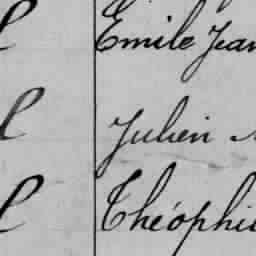 l Emile Jean
l Julien
l Théophi